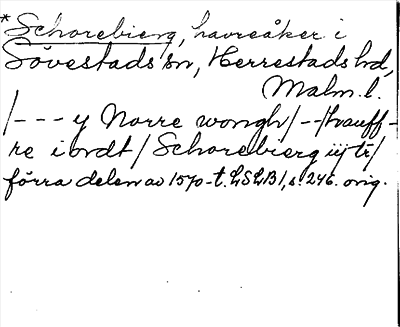 *Schorebierg, havreåker i
Sövestads sn, Herrestads hd,
Malm. l.
/--- y Norre wongh/--/hauff-
re i ordt/ Schorebierg iij tr/
förra delen av 1570-t. LSLB1, s. 246. orig.